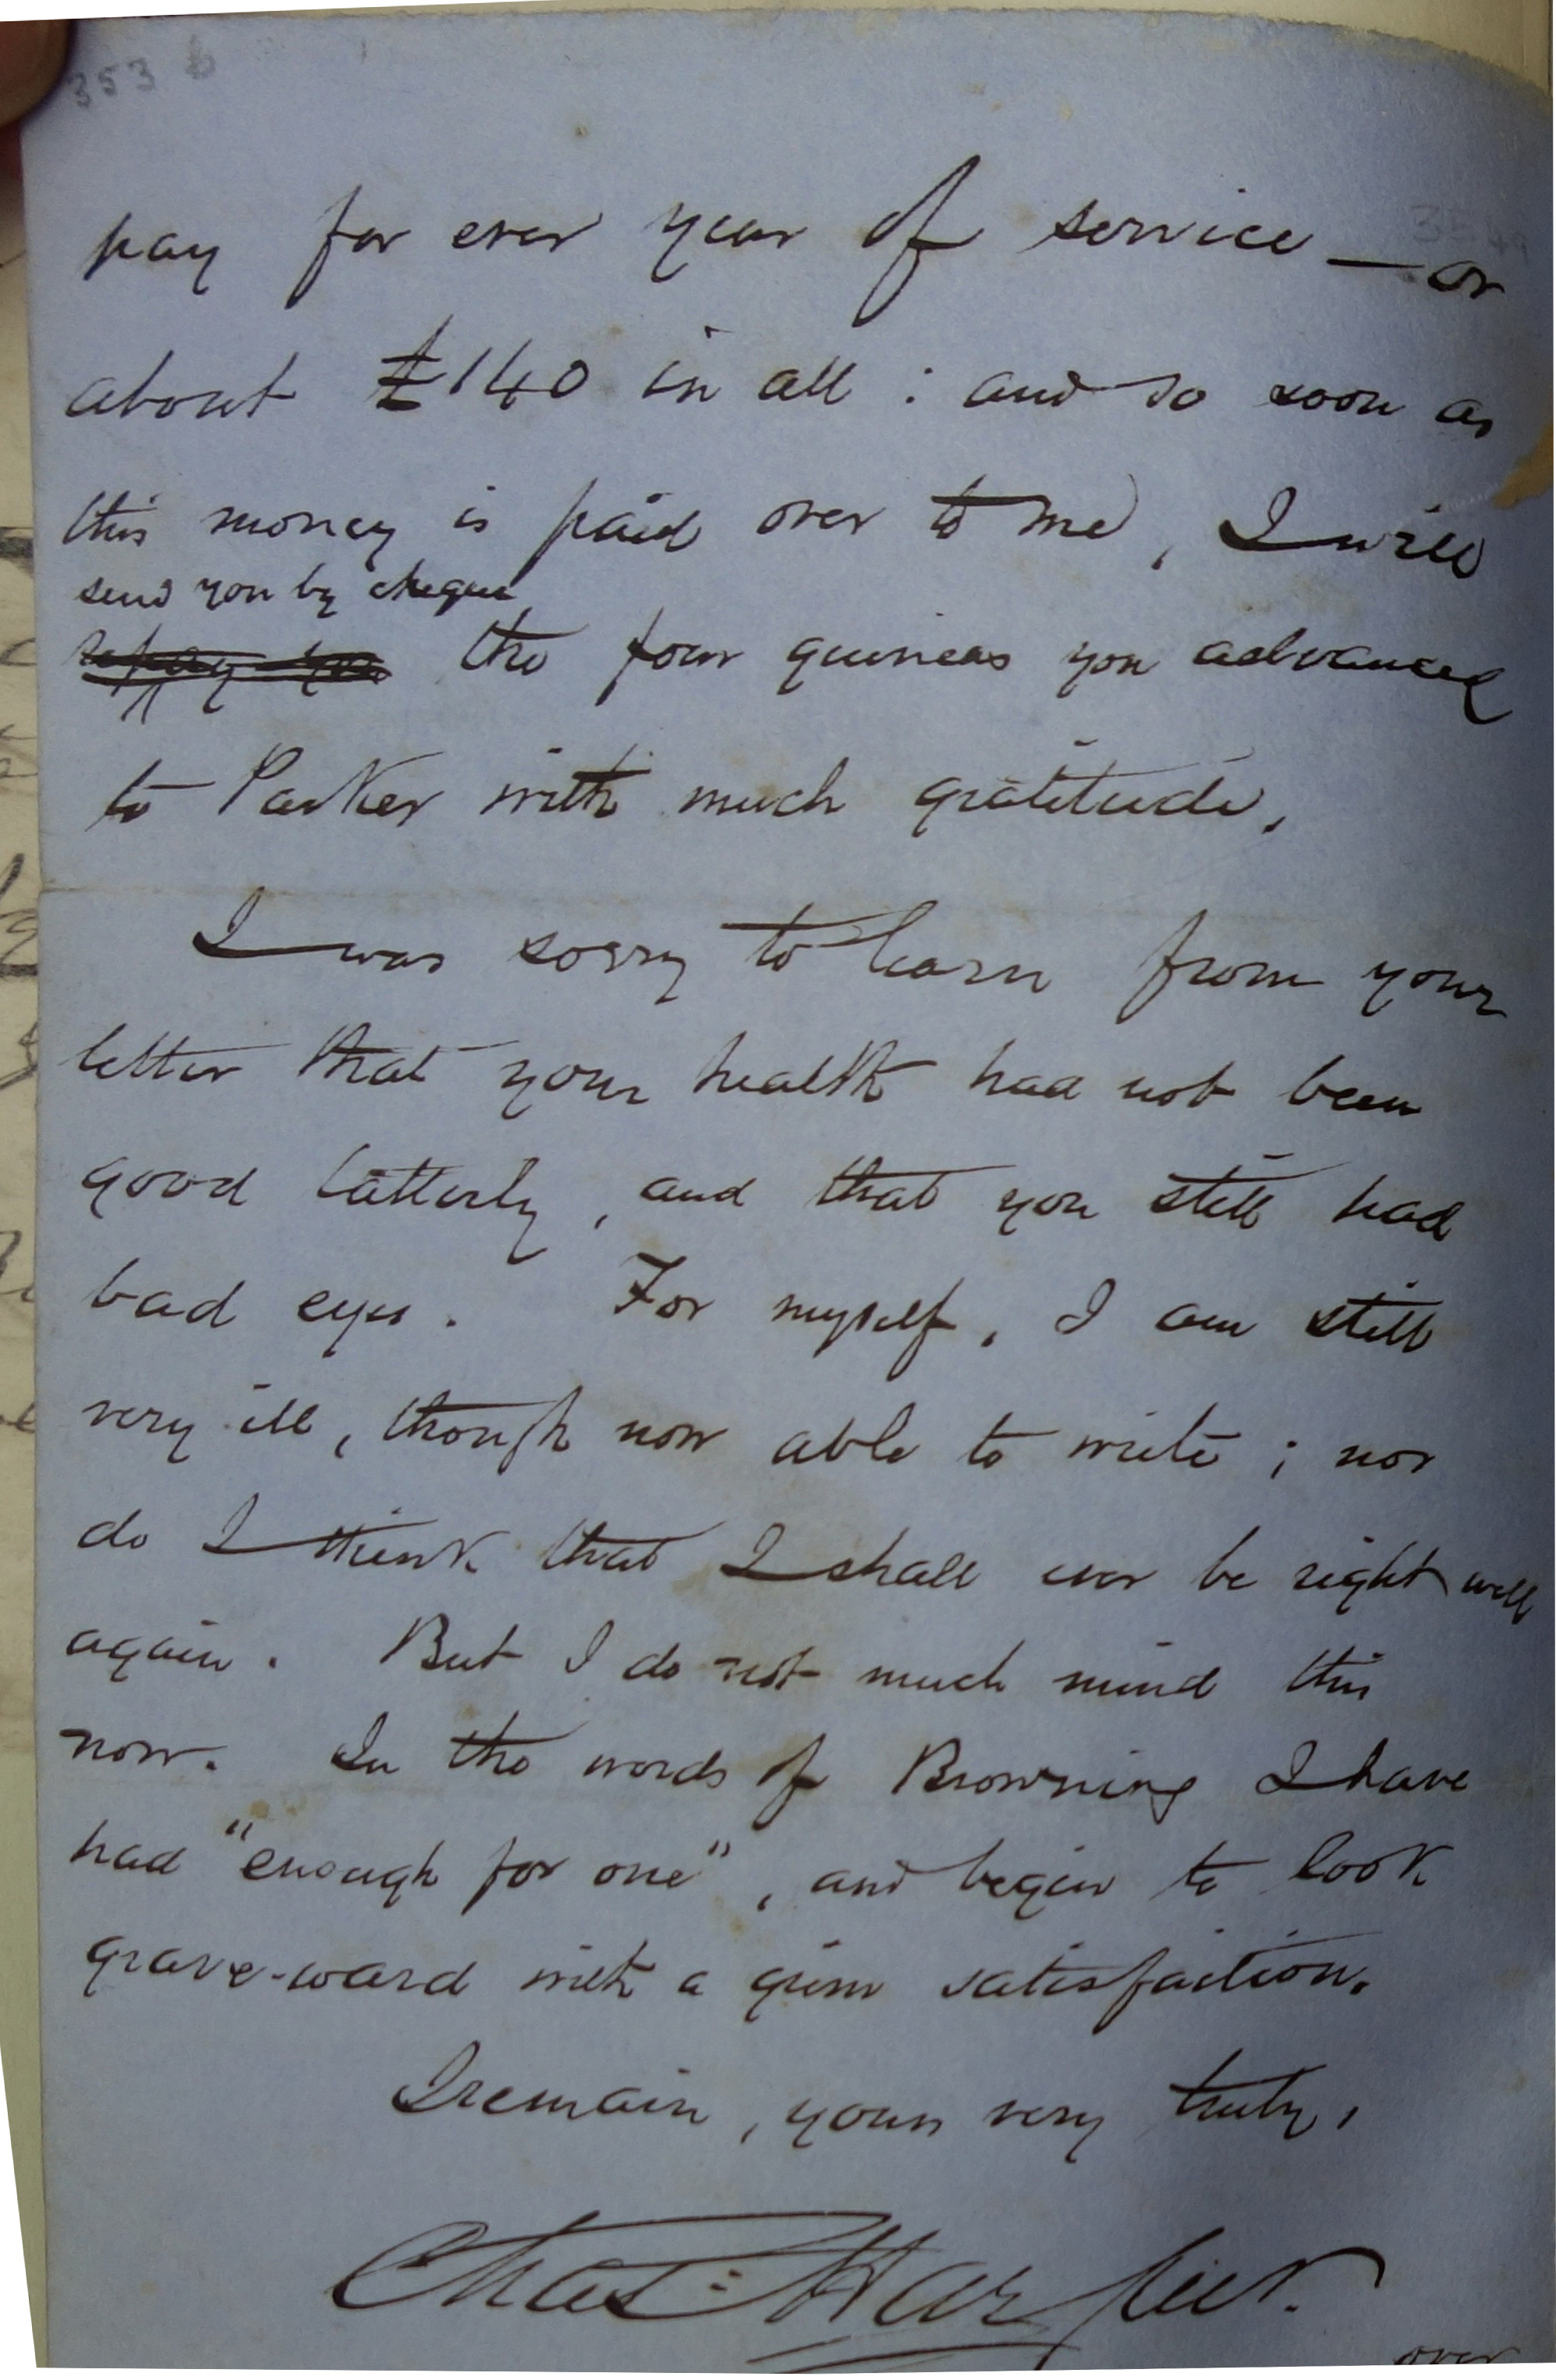 353 b
pay for ever year of service — or
about £140 in all : and so soon as
this money is paid over to me, I will
send you by cheque
repay you the four guineas you advanced
to Parker with much gratitude.
I was sorry to learn from your
letter that your health had not been
good latterly, and that you still had
bad eyes. For myself, I am still
very ill, though now able to write ; nor
do I think that I shall ever be right well
again. But I do not much mind this
now. In the words of Browning I have
had "enough for one", and begin to look
grave-ward with a grim satisfaction.
I remain, yours very truly,
Chas: Harpur.
over